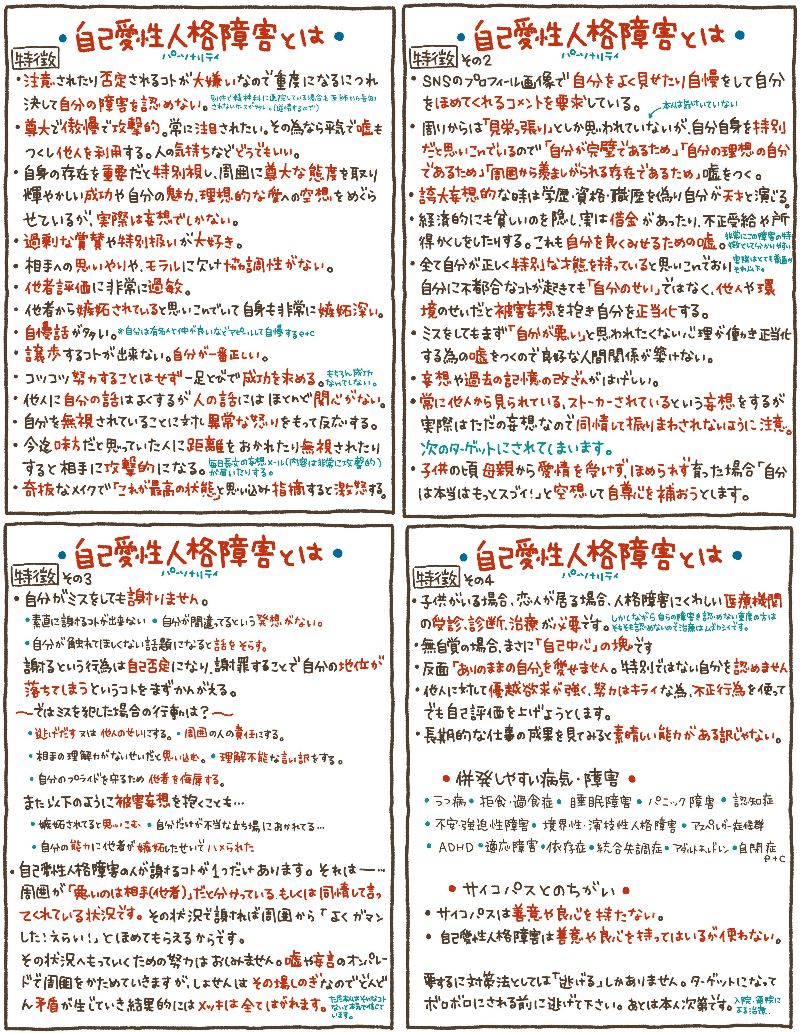 自己愛性人格障害とは
パーソナリティ
特徴
・注意されたり否定されるコトが大嫌いなので重度になるにつれ
決して自分の障害を認めない。
・尊大で傲慢で攻撃的。常に注目されたい。その為なら平気で嘘も
つくし他人を利用する。人の気持ちなどどうでもいい。
・自身の存在を重要だと特別視し、周囲に尊大な態度を取り
輝やかしい成功や自分の魅力、理想的な愛への空想をめぐら
せているが、実際は妄想でしかない。
・過剰な賞賛や特別扱いが大好き。
・相手への思いやりや、モラルに欠け協調性がない。
・他者評価に非常に過敏。
・他者から嫉妬されていると思いこんでいて自身も非常に嫉妬深い。
・自慢話が多い。※自分は有名人と仲が良いなどアピールして自慢するetc
・譲歩するコトが出来ない。自分が一番正しい。
・コツコツ努力することはせず一足とびで成功を求める。もちろん成功
なんてしない。
・他人に自分の話はよくするが人の話にはほとんど関心がない。
・自分を無視されていることに対し異常な怒りをもって反応する。
・今迄味方だと思っていた人に距離をおかれたり無視されたり
すると相手に攻撃的になる。毎日長文の妄想メール(内容は非常に攻撃的)
が届いたりする。
・奇抜なメイクで「これが最高の状態」と思い込み指摘すると激怒する。
自己愛性人格障害とは
パーソナリティ
特徴 その2
・SNSのプロフィール画像で自分をよく見せたり自慢をして自分
をほめてくれるコメントを要求している。
本人は気付いていない
・周りからは「見栄っ張り」としか思われていないが、自分自身を特別
だと思いこんでいるので「自分が完璧であるため」「自分の理想の自分
であるため」「周囲から羨ましがられる存在であるため」嘘をつく。
・誇大妄想的な時は学歴・資格・職歴を偽り自分が天才と演じる。
・経済的にも貧しいのを隠し、実は借金があったり、不正受給や所
得かくしをしたりする。これも自分を良くみせるための嘘。非常にこの障害の特
徴として分かりやすい
・全て自分が正しく特別な才能を持っていると思いこんでおり実際はとても普通か
それ以下。
自分に不都合なコトが起きても「自分のせい」ではなく、他人や環
境のせいだと被害妄想を抱き自分を正当化する。
・ミスをしてもまず「自分が悪い」と思われたくない心理が働き正当化
する為の嘘をつくので良好な人間関係が築けない。
・妄想や過去の記憶の改ざんがはげしい。
・常に他人から見られている、ストーカーされているという妄想をするが
実際はただの妄想なので同情して振りまわされないように注意。
次のターゲットにされてしまいます。
・子供の頃母親から愛情を受けず、ほめられず育った場合「自分
は本当はもっとスゴイ!」と空想して自尊心を補おうとします。
自己愛性人格障害とは
パーソナリティ
特徴 その3
・自分がミスをしても謝りません。
・素直に謝るコトが出来ない ・自分が間違ってるという発想がない。
・自分が触れてほしくない話題になると話をそらす。
謝るという行為は自己否定になり、謝罪することで自分の地位が
落ちてしまうというコトをまずかんがえる。
〜ではミスを犯した場合の行動は?〜
・逃げだす又は他人のせいにする。・周囲の人の責任にする。
・相手の理解力がないせいだと思い込む。・理解不能な言い訳をする。
・自分のプライドを守るため他者を侮辱する。
また以下のように被害妄想を抱くことも…
・嫉妬されてると思いこむ ・自分だけが不当な立ち場におかれてる…
・自分の能力に他者が嫉妬したせいでハメられた
・自己愛性人格障害の人が謝るコトが1つだけあります。それは…
周囲が「悪いのは相手(他者)」だと分かっている、もしくは同情して言っ
てくれている状況です。その状況で謝れば周囲から「よくガマン
した!えらい!」とほめてもらえるからです。
その状況へもっていくための努力はおしみません。嘘や妄言のオンパレー
ドで周囲をかためていきますが、しょせんはその場しのぎなのでどんど
ん矛盾が生じていき結果的にはメッキは全てはがれます。
自己愛性人格障害とは
パーソナリティ
特徴 その4
・子供がいる場合、恋人が居る場合、人格障害にくわしい医療機関
の受診、診断、治療が必要です。しかしながら自らの障害を認めない重度の方は
そもそも認めないので治療はムズカシイです。
・無自覚の場合、まさに「自己中心」の塊です
・反面「ありのままの自分」を愛せません。特別ではない自分を認めません
・他人に対して優越欲求が強く、努力はキライな為、不正行為を使って
でも自己評価を上げようとします。
・長期的な仕事の成果を見てみると素晴しい能力がある訳じゃない。
・併発しやすい病気・障害・
・うつ病・拒食・過食症・睡眠障害・パニック障害・認知症
・不安・強迫性障害・境界性・演技性人格障害・アスペルガー症候群
・ADHD・適応障害・依存症・統合失調症・アダルトチルドレン・自閉症
etc
・サイコパスとのちがい・
・サイコパスは善意や良心を持たない。
・自己愛性人格障害は善意や良心を持ってはいるが使わない。
要するに対策法としては「逃げる」しかありません。ターゲットになって
ボロボロにされる前に逃げて下さい。あとは本人次第です。入院・通院に
よる治療。